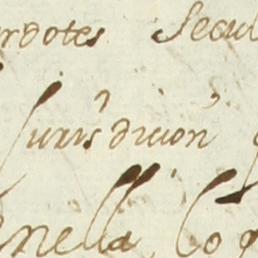 rdotes Secul
Juris'dicion
enella, Co